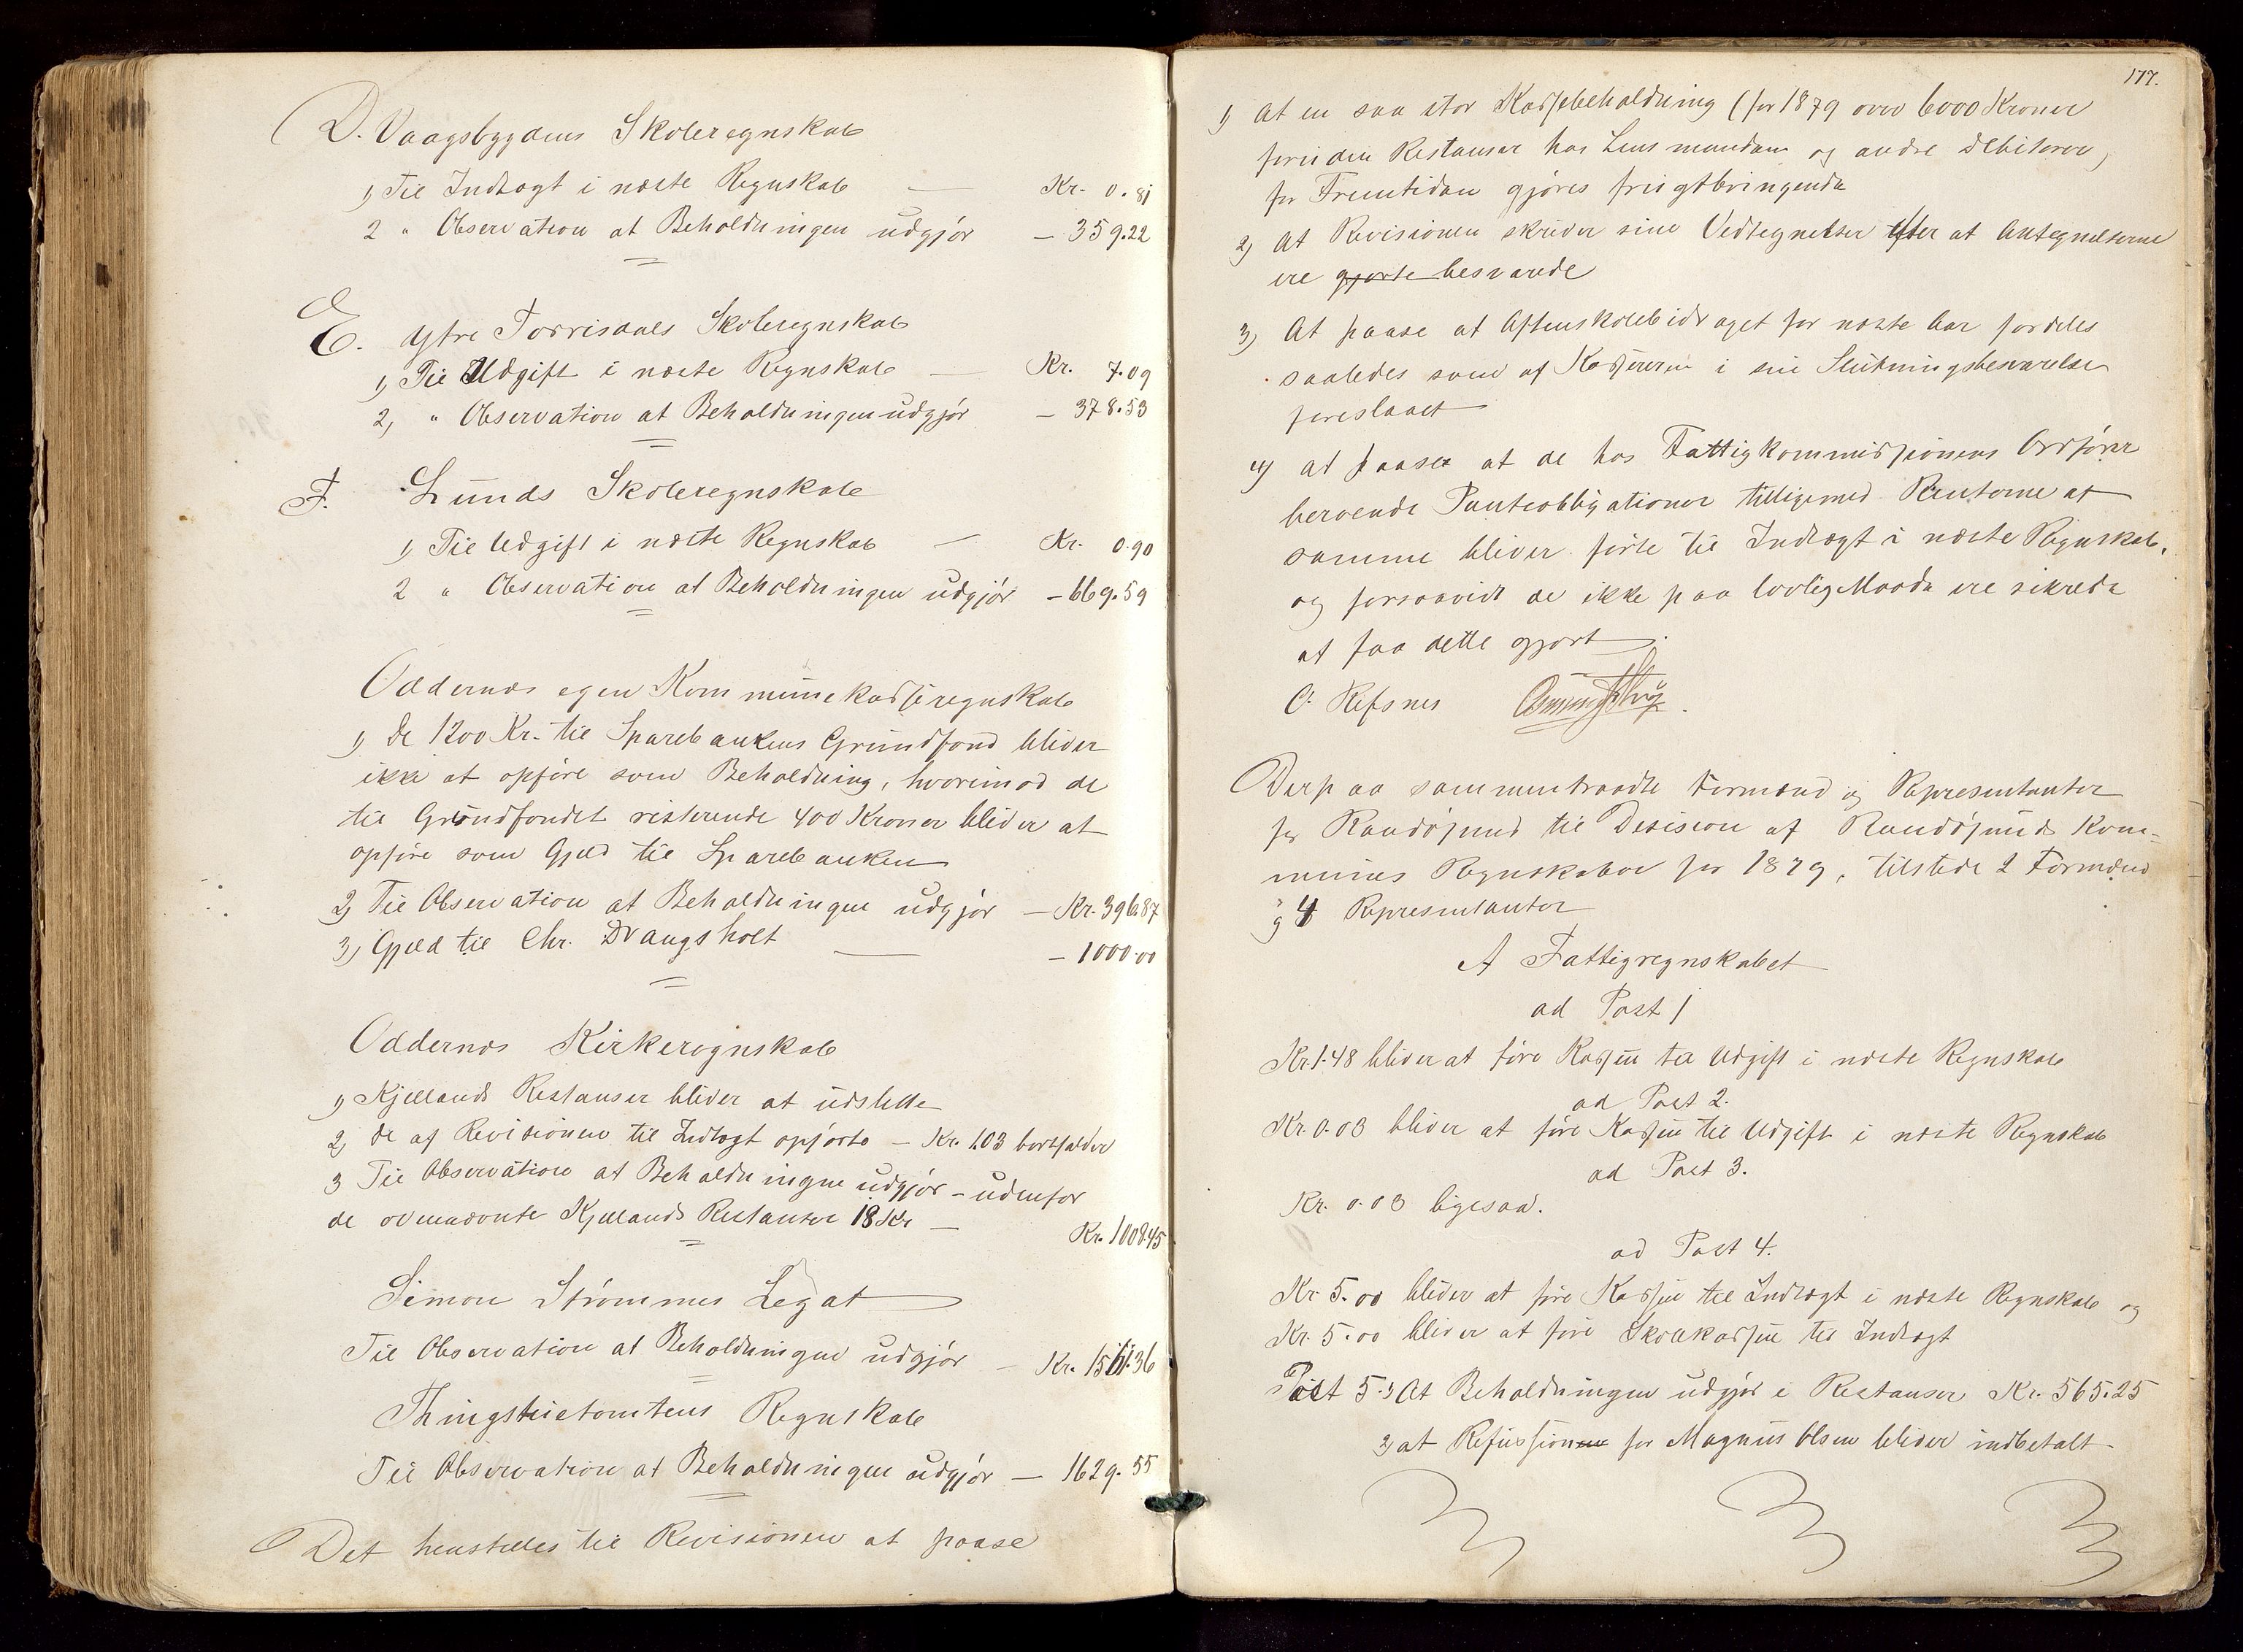 D. Vaagsbygdens Skoleregnskab
1) Til Indtægt i næste Regnskab — Kr. 0.81
2 " Observation at Beholdningen udgjør — 359.22
E. Ytre Torrisdals Skoleregnskab
1) Til Udgift i næste Regnskab — Kr. 7.09
2) " Observation at Beholdningen udgjør — 378.53
F. Lunds Skoleregnskab
1) Til Udgift i næste Regnskab — Kr. 0.90
2 " Observation at Beholdningen udgjør — 669.59
Oddernes egen Kommunekasseregnskab
1) De 1200 Kr. til Sparebankens Grundfond bliver
ikke at opføre som Beholdning, hvorimod de
til Grundfondet resterende 400 Kroner bliver at
opføre som Gjæld til Sparebanken
2) Til Observation at Beholdningen udgjør — Kr. 396.87
3) Gjæld til Chr. Drangsholt — 1000.00
Oddernes Kirkeregnskab
1) Kjellands Restanser bliver at udslette
2) de af Revisionen til Indtægt opførte — Kr. 1.03 bortfalder
3 Til Observation at Beholdningen udgjør — udenfor
de ovennævnte Kjellands Restanser 18 Kr —
Kr. 1008.45
Simon Strømmes Legat
Til Observation at Beholdningen udgjør — Kr. 1561.36
Thingstuetomtens Regnskab
Til Observation at Beholdningen udgjør — 1629.55
Det henstilles til Revisionen at paase
177.
1) at en saa stor Kassebeholdning (for 1879 over 6000 Kroner
foruden Restanser hos Lensmanden og andre Debitorer)
for Fremtiden gjøres frugtbringende
2) At Revisionen skriver sine Vedtegnelser efter at Antegnelserne
ere gjorte besvarede
3) At paase at Aftenskolebidraget for næste Aar fordeles
saaledes som af Kassereren i sin Slutningsbesvarelse
foreslaaet
4) at paase at de hos Fattigkommissionens Ordfører
beroende Panteobligationer tilligemed Renterne af
samme bliver førte til Indtægt i næste Regnskab,
og forsaavidt de ikke paa lovlig Maade ere sikrede
at faa dette gjort.
O. Refsnes
Derpaa sammentraadte Formænd og Repræsentanter
for Randøsund til Desision af Randøsunds Kom-
munes Regnskaber for 1879, tilstede 2 Formænd
og 4 Repræsentanter
A Fattigregnskabet
ad Post 1
Kr. 1.48 bliver at føre Kassen til Udgift i næste Regnskab
ad Post 2.
Kr. 0.03 bliver at føre Kassen til Udgift i næste Regnskab
ad Post 3.
Kr. 0.03 ligesaa.
ad Post 4.
Kr. 5.00 bliver at føre Kassen til Indtægt i næste Regnskab og
Kr. 5.00 bliver at føre Skolekassen til Indtægt
Post 5. 1) At Beholdningen udgjør i Restanser Kr. 565.25
2) at Refussionen for Magnus Olsen bliver indbetalt.